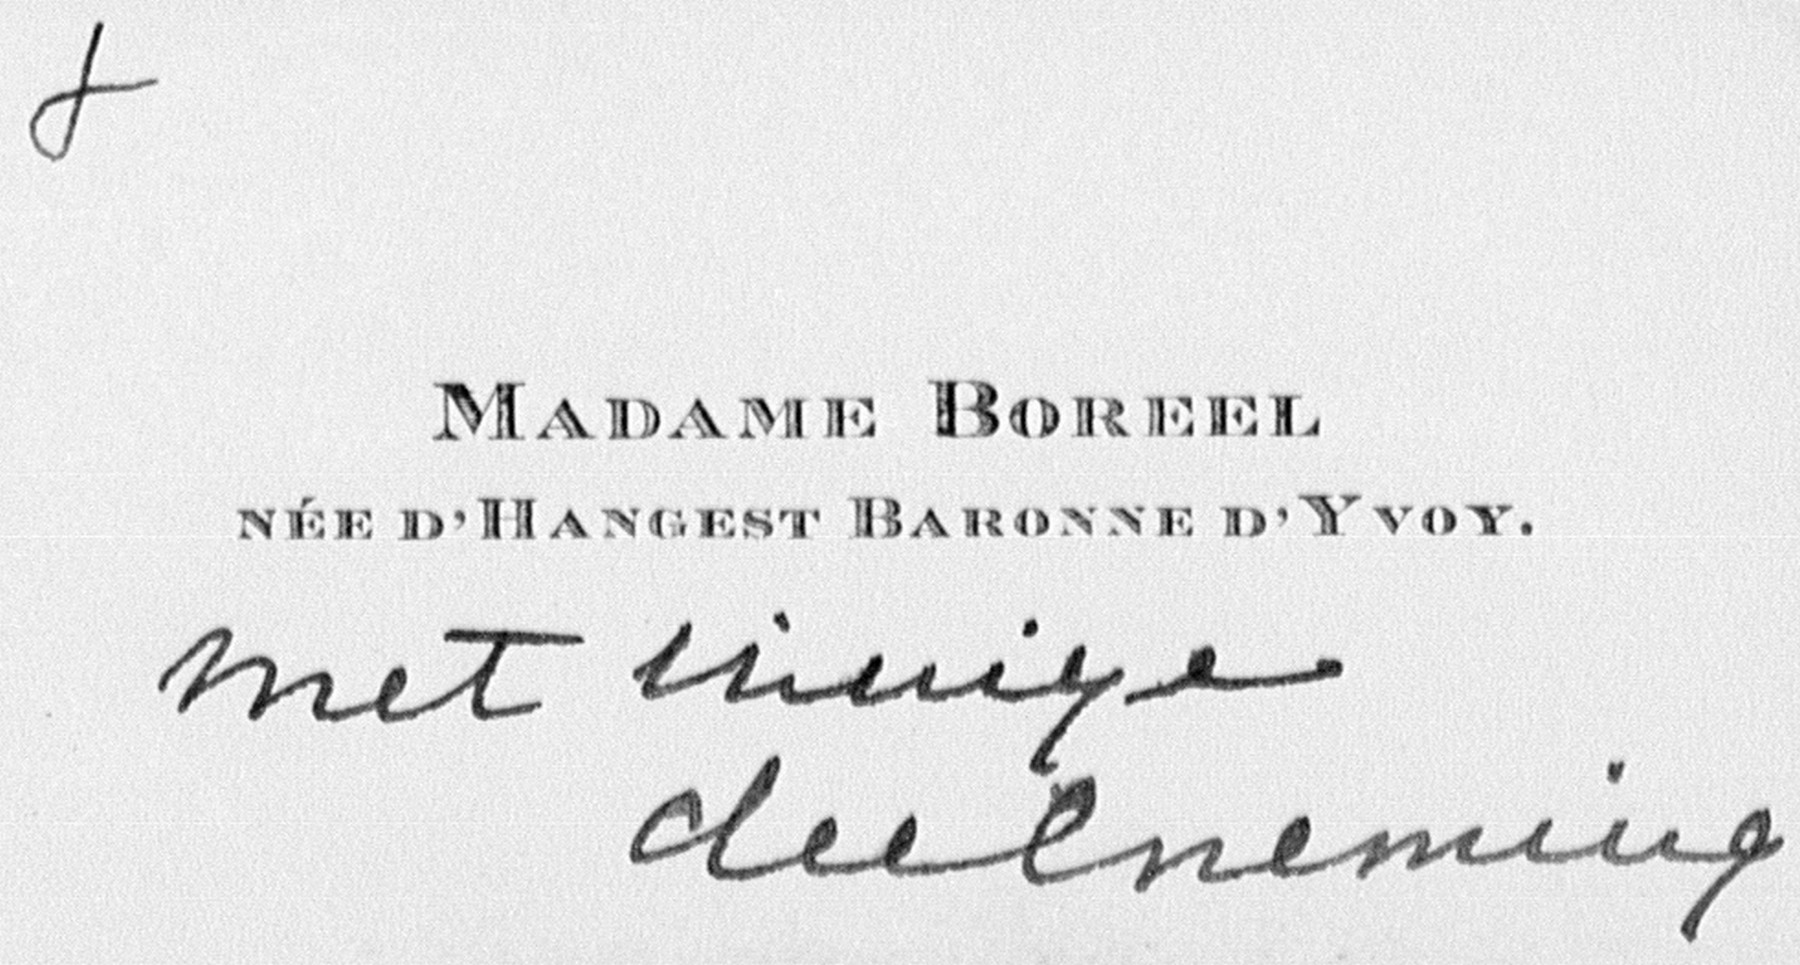 Madame Boreel
née d'Hangest Baronne d'Yvoy.
met innige
deelneming